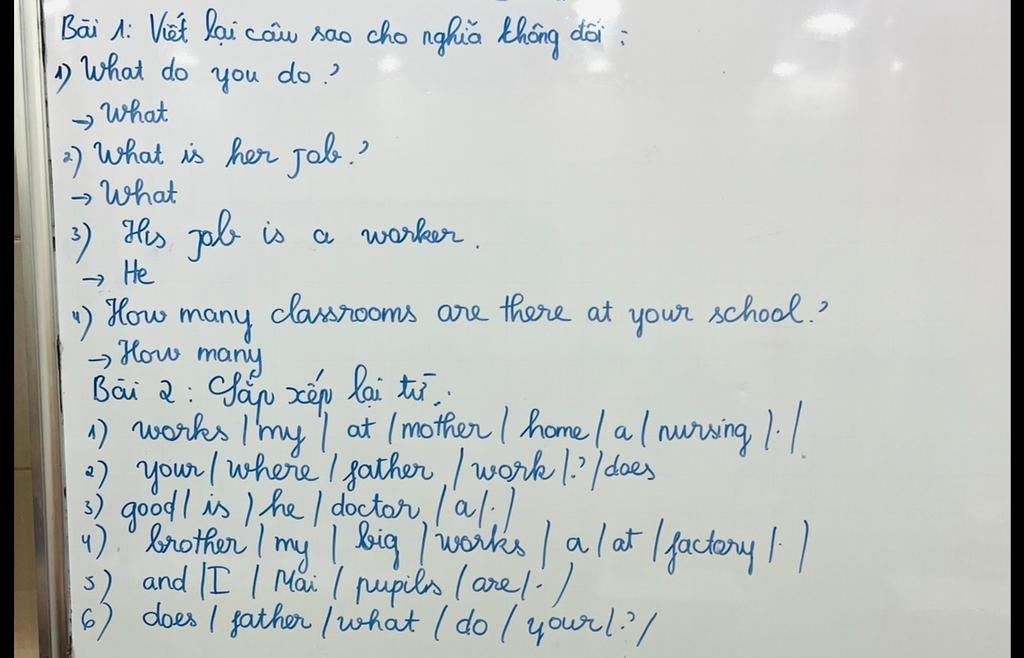 Bài 1: Viết lại câu sao cho nghĩa không đổi :
1) What do you do ?
→ What
2) What is her job ?
→ What
3) His job is a worker .
→ He
4) How many classrooms are there at your school ?
→ How many
Bài 2 : Sắp xếp lại từ :
1) works / my / at / mother / home / a / nursing / . /
2) your / where / father / work / ? / does
3) good / is / he / doctor / a / . /
4) brother / my / big / works / a / at / factory / . /
5) and / I / Mai / pupils / are / . /
6) does / father / what / do / your / ? /